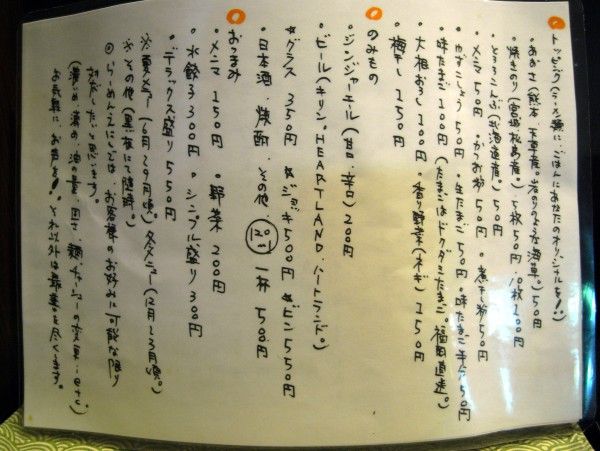 トッピング(ラーメン、飯に、ごはんにあなたのオリジナルを!)
・あおさ(熊本 天草産。岩のりのような海草。)50円
・焼きのり(宮城松島産。)5枚50円・10枚100円
・とろろこんぶ(北海道産。)50円
・メンマ50円 ・かつお粉50円 ・煮干し粉50円
・ゆずこしょう50円 ・生たまご50円・味たまご半分50円
・味たまご100円(たまごはドクダミたまご。福岡直送。)
・大根おろし100円・香り野菜(ネギ)150円
・梅干し150円
のみもの
・ジンジャーエール(甘口・辛口)200円
・ビール(キリン。HEARTLAND・ハートランド。)
グラス 350円 ジョッキ500円 ビン550円
・日本酒・焼酎・その他 一杯 500円
おつまみ
・メンマ 150円 ・野菜 200円
・水餃子300円 ・シンプル盛り300円
・デラックス盛り550円
※夏メニュー(6月~9月頃。)冬メニュー(12月~3月頃。)
※その他(黒板にて随時。)
◎らーめんえにしでは、お客様のお好みに可能な限り
対応したいと思います。
(濃いめ・薄め・油の量・固さ・麺・チャーシューの変更・etc)
お気軽に、お声を!それ以外は最善を尽くします。